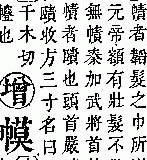 幘者韜髮之巾所
元帝額有壯髮不
無幘秦加武將首
幘者賾也頭首嚴
賾收方三寸名曰
千木切
也
增
幙